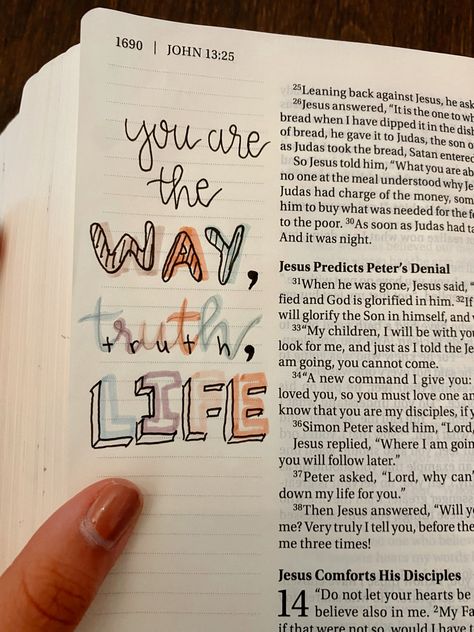 1690 | JOHN 13:25
you are
the
WAY,
truth,
LIFE
25Leaning back against Jesus, he ask
26Jesus answered, "It is the one to wh
bread when I have dipped it in the dish
of bread, he gave it to Judas, the son o
as Judas took the bread, Satan entered
So Jesus told him, "What you are ab
no one at the meal understood why Je
Judas had charge of the money, som
him to buy what was needed for the f
to the poor. 30As soon as Judas had ta
And it was night.
Jesus Predicts Peter's Denial
31When he was gone, Jesus said, "
fied and God is glorified in him. 32If
will glorify the Son in himself, and w
33"My children, I will be with you
look for me, and just as I told the Je
am going, you cannot come.
34"A new command I give you
loved you, so you must love one an
know that you are my disciples, if y
36Simon Peter asked him, "Lord,
Jesus replied, "Where I am going
you will follow later."
37Peter asked, "Lord, why can'
down my life for you."
38Then Jesus answered, "Will yo
me? Very truly I tell you, before the
me three times!
Jesus Comforts His Disciples
14 "Do not let your hearts be
believe also in me. 2My Fa
if that were not so, would I have t